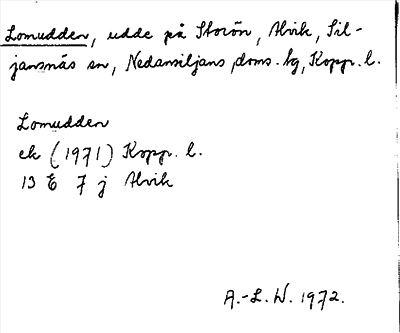 Lomudden, udde på Storön, Alvik, Sil-
jansnäs sn, Nedansiljans doms. hg, Kopp. l.
Lomudden
ek (1971) Kopp. l.
13 E 7 j Alvik
A.-L. W. 1972.